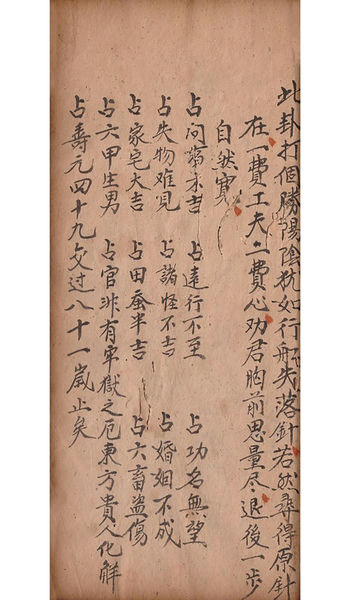 此卦打個勝陽陰犹如行船失落針若然尋得原針
在一費工夫二費心劝君胸前思量尽退後一步
自然寬
占問病不吉 占遠行不至 占功名無望
占失物难見 占諸怪不吉 占婚姻不成
占家宅大吉 占田蚕半吉 占六畜盗傷
占六甲生男 占官非有牢獄之厄東方貴人化解
占壽元四十九交过八十一嵗止矣